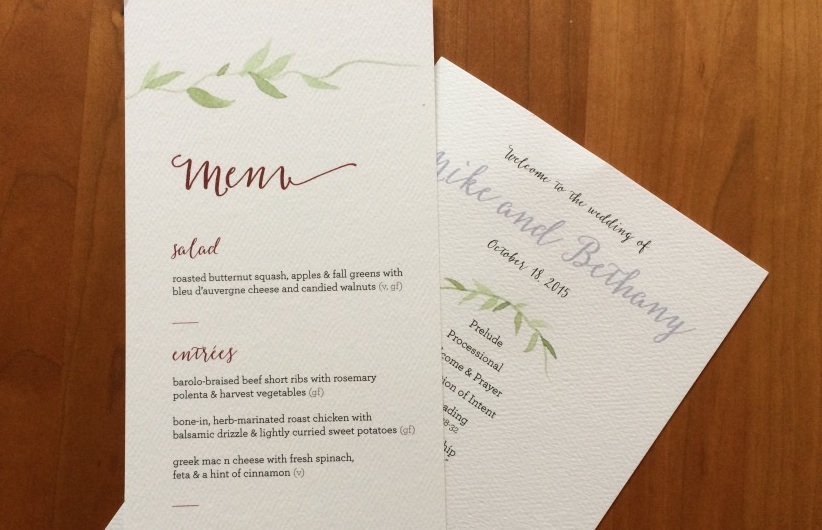 Menu
salad
roasted butternut squash, apples & fall greens with
bleu d'auvergne cheese and candied walnuts (v, gf)
entrées
barolo-braised beef short ribs with rosemary
polenta & harvest vegetables (gf)
bone-in, herb-marinated roast chicken with
balsamic drizzle & lightly curried sweet potatoes (gf)
greek mac n cheese with fresh spinach,
feta & a hint of cinnamon (v)
Welcome to the wedding of
Mike and Bethany
October 18, 2015
Prelude
Processional
come & Prayer
ion of Intent
ading
8:32
hip